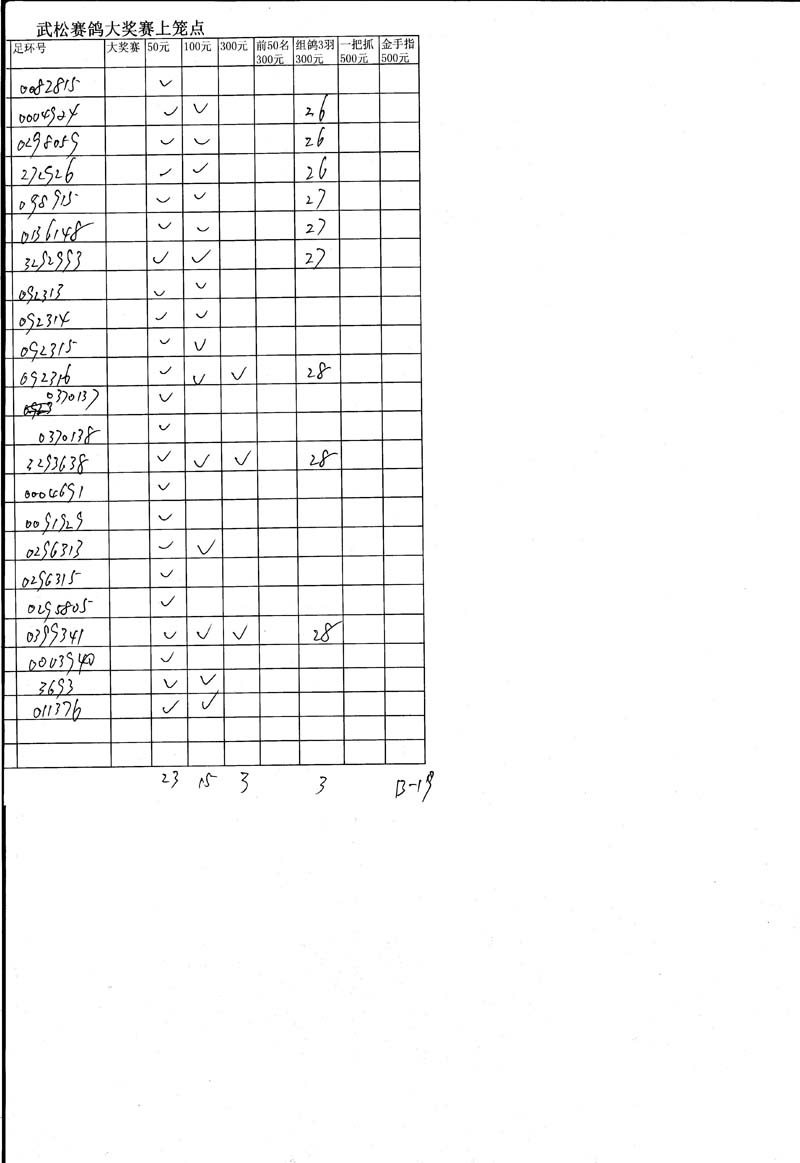 武松赛鸽大奖赛上笼点
足环号 大奖赛 50元 100元 300元 前50名300元 组鸽3羽300元 一把抓500元 金手指500元
0082815 ✓
0004924 ✓ ✓ 26
0298059 ✓ ✓ 26
272926 ✓ ✓ 26
098915 ✓ ✓ 27
0136148 ✓ ✓ 27
3292993 ✓ ✓ 27
092313 ✓ ✓
092314 ✓ ✓
092315 ✓ ✓
092316 ✓ ✓ ✓ 28
0370137 ✓
0370138 ✓
3293638 ✓ ✓ ✓ 28
0004691 ✓
0091929 ✓
0296313 ✓ ✓
0296315 ✓
0295805 ✓
0399341 ✓ ✓ ✓ 28
0003940 ✓
3693 ✓ ✓
011376 ✓ ✓
23 15 3 3 B-19